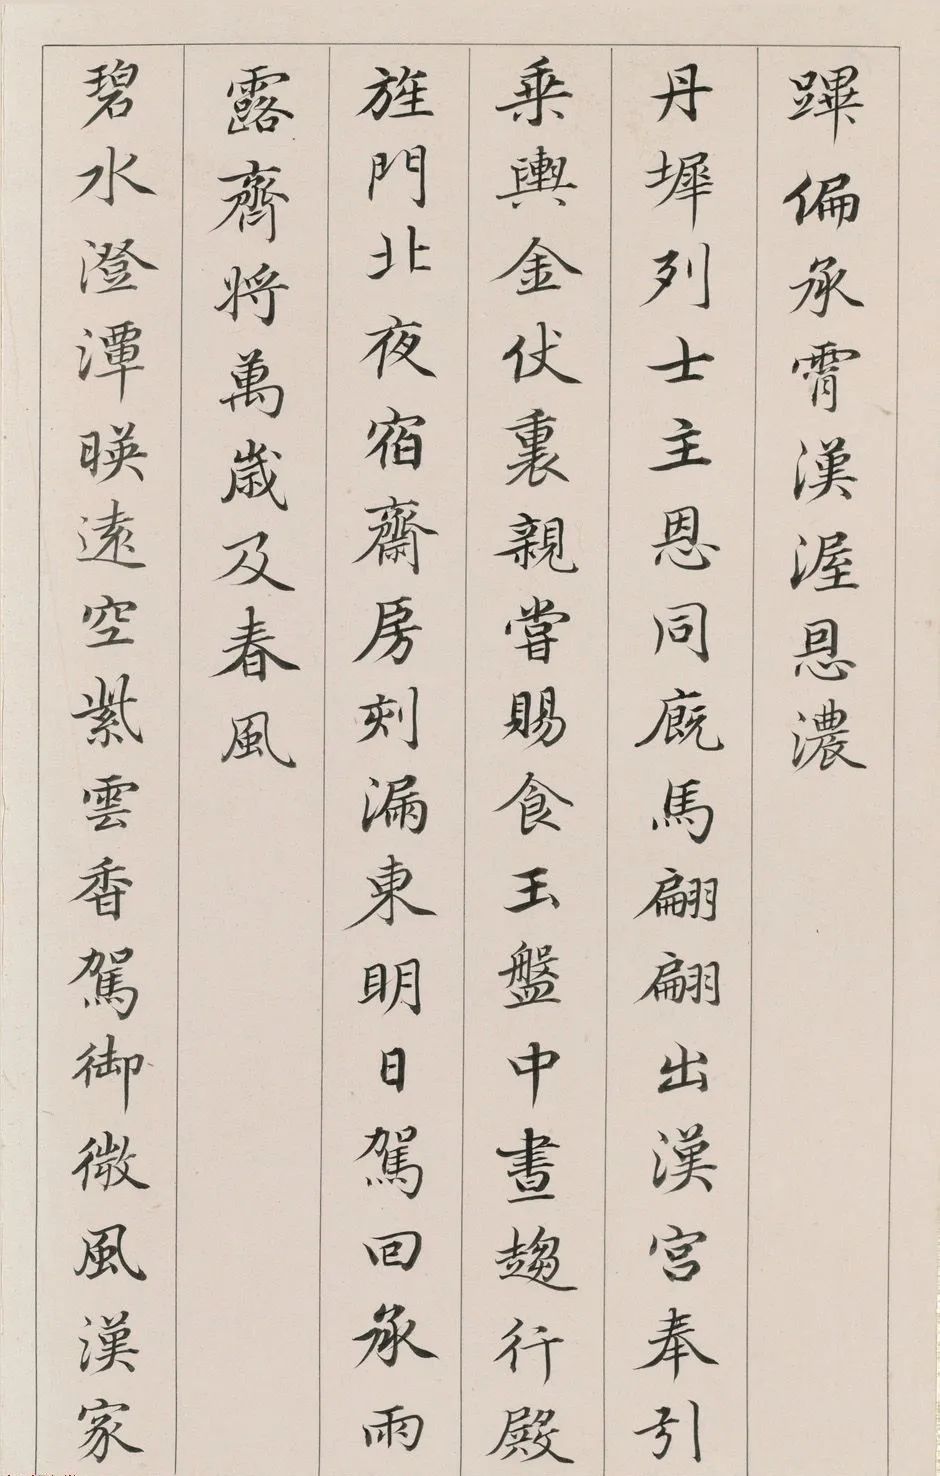 蹕偏承霄漢渥恩濃
丹墀列士主恩同廐馬翩翩出漢宮奉引
乘輿金仗裏親嘗賜食玉盤中晝趨行殿
旌門北夜宿齋房刻漏東明日駕回承雨
露齊將萬歲及春風
碧水澄潭暎遠空紫雲香駕御微風漢家